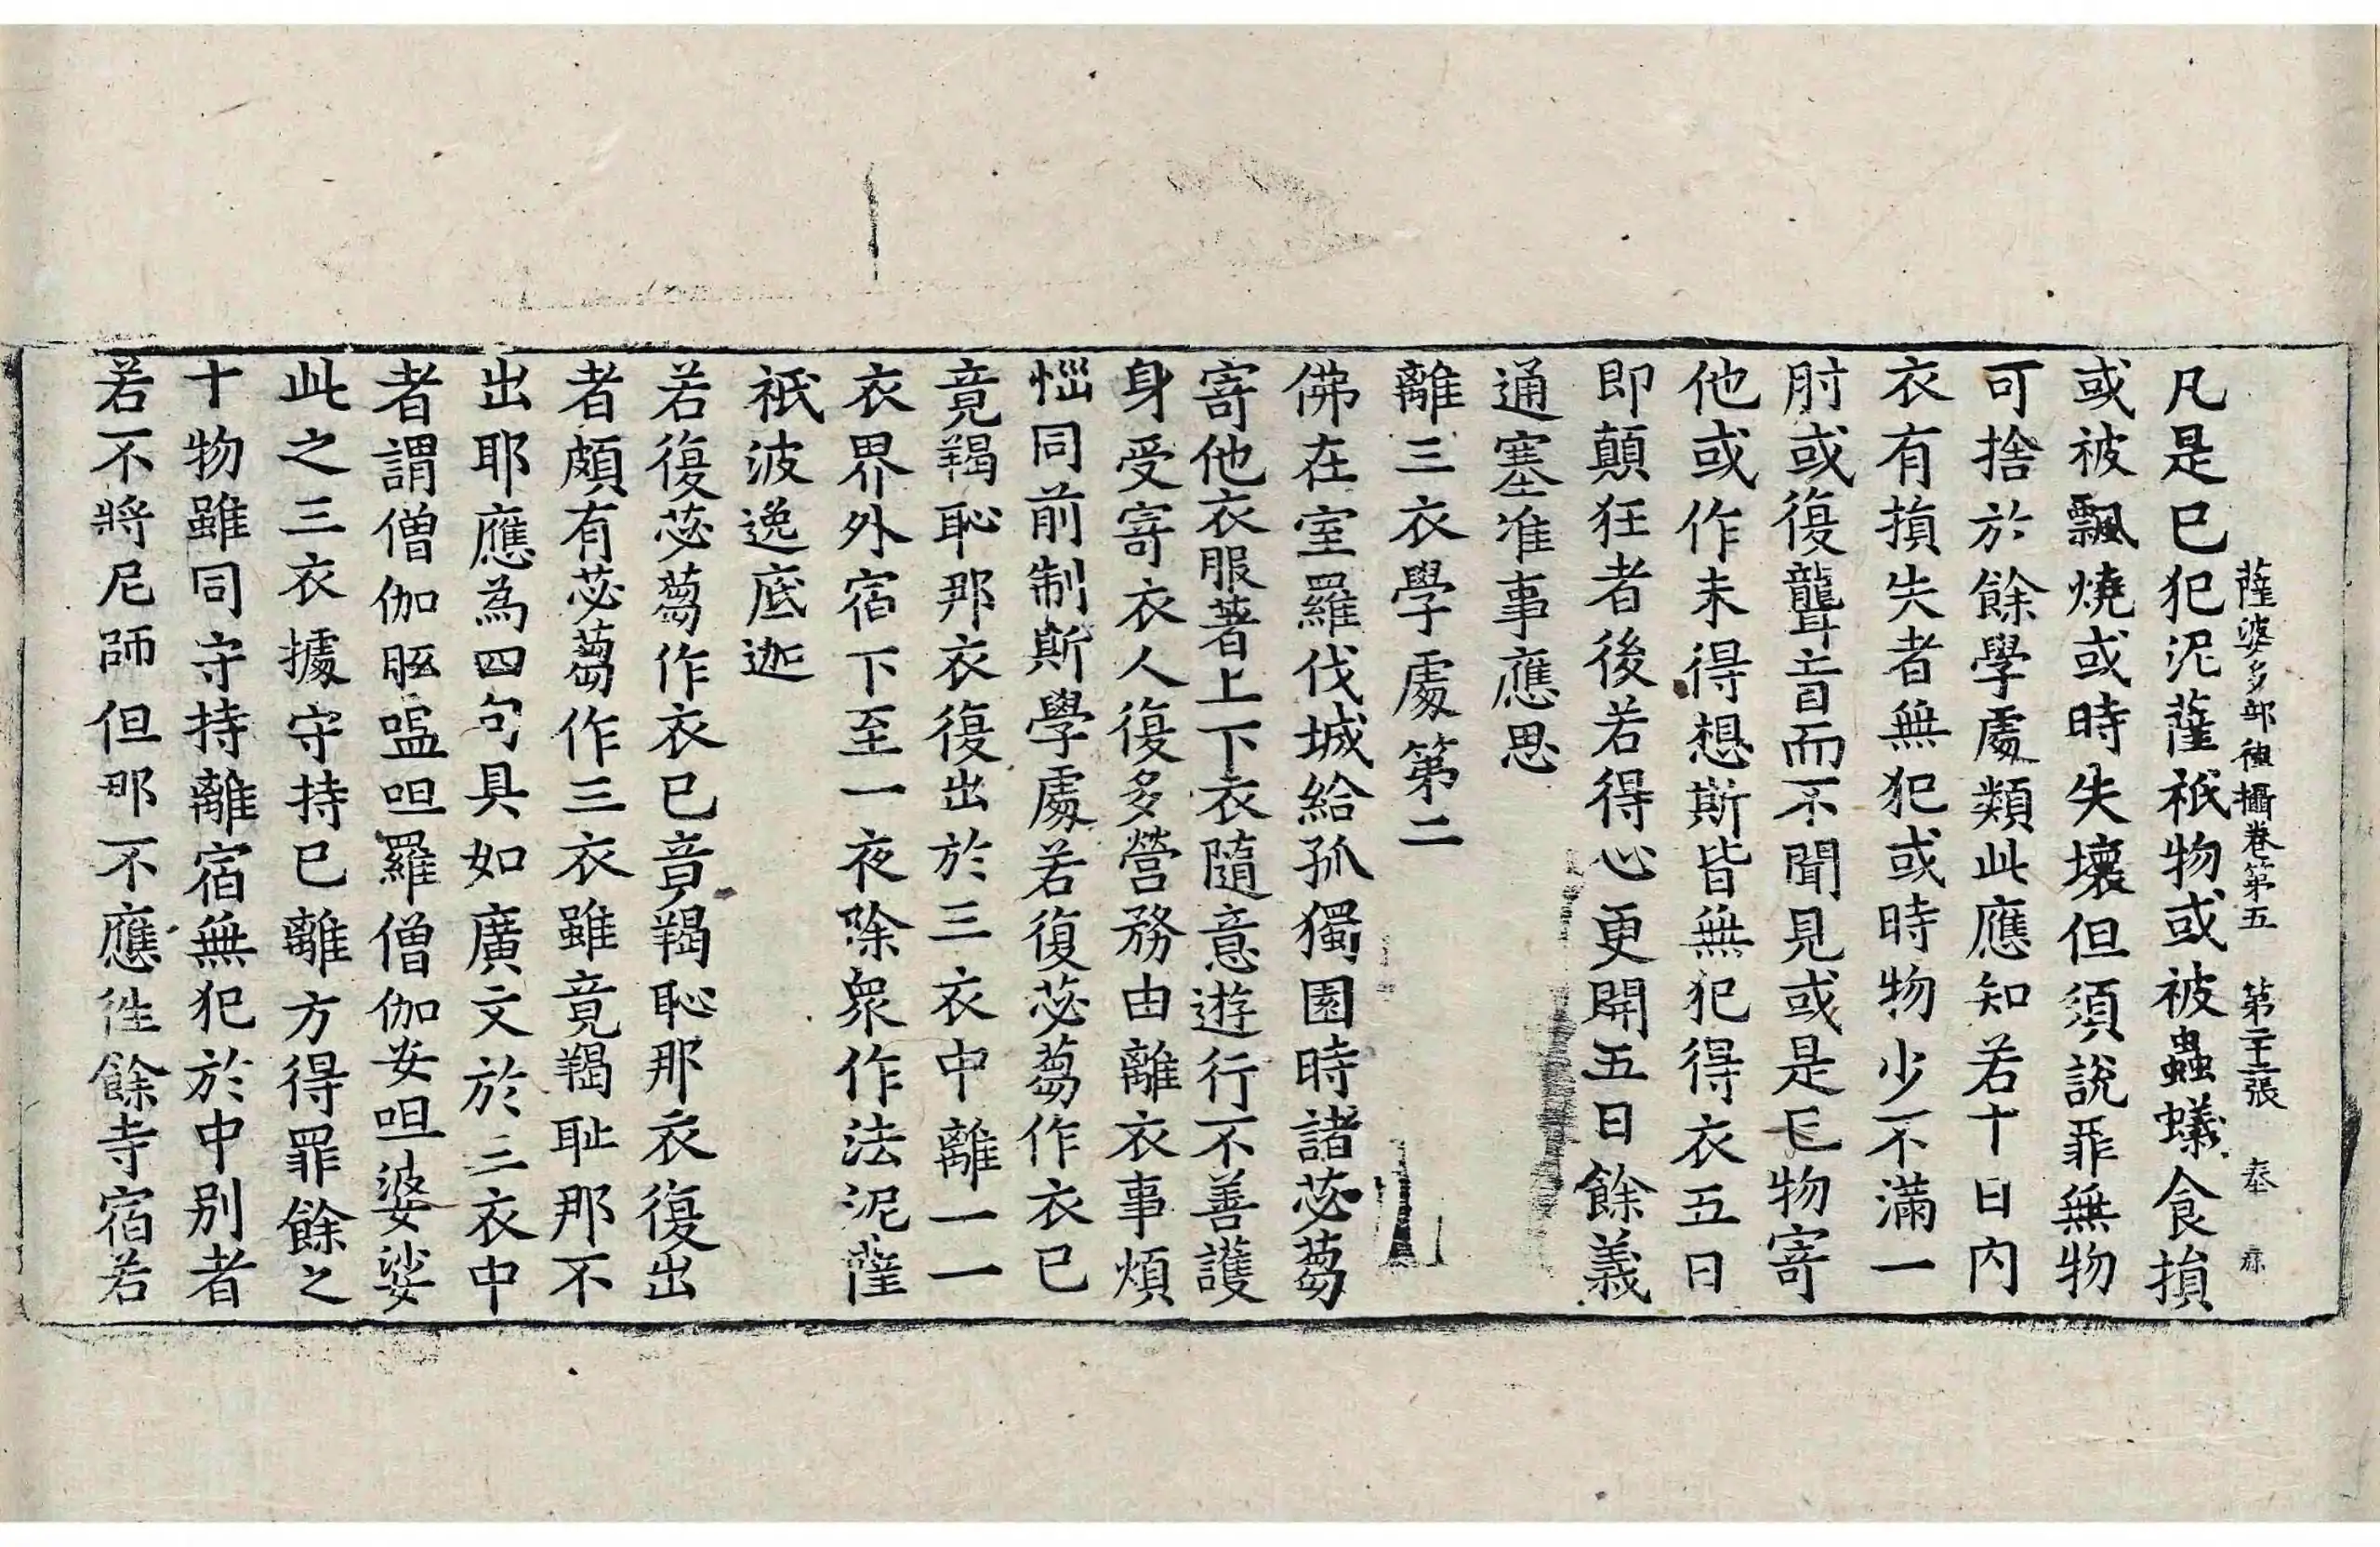 薩婆多部律攝卷第五 第二十三張 奉
凡是已犯泥薩祇物或被蟲蟻食損
或被飄燒或時失壞但須說罪無物
可捨於餘學處類此應知若十日內
衣有損失者無犯或時物少不滿一
肘或復聾盲而不聞見或是毛物寄
他或作未得想斯皆無犯得衣五日
即顛狂者後若得心更開五日餘義
通塞准事應思
離三衣學處第二
佛在室羅伐城給孤獨園時諸苾蒭
寄他衣服著上下衣隨意遊行不善護
身受寄衣人復多營務由離衣事煩
惱同前制斯學處若復苾蒭作衣已
竟羯恥那衣復出於三衣中離一一
衣界外宿下至一夜除眾作法泥薩
祇波逸底迦
若復苾蒭作衣已竟羯恥那衣復出
者頗有苾蒭作三衣雖竟羯耻那不
出耶應為四句具如廣文於三衣中
者謂僧伽胝嗢呾羅僧伽安呾婆娑
此之三衣據守持已離方得罪餘之
十物雖同守持離宿無犯於中別者
若不將尼師但那不應往餘寺宿若